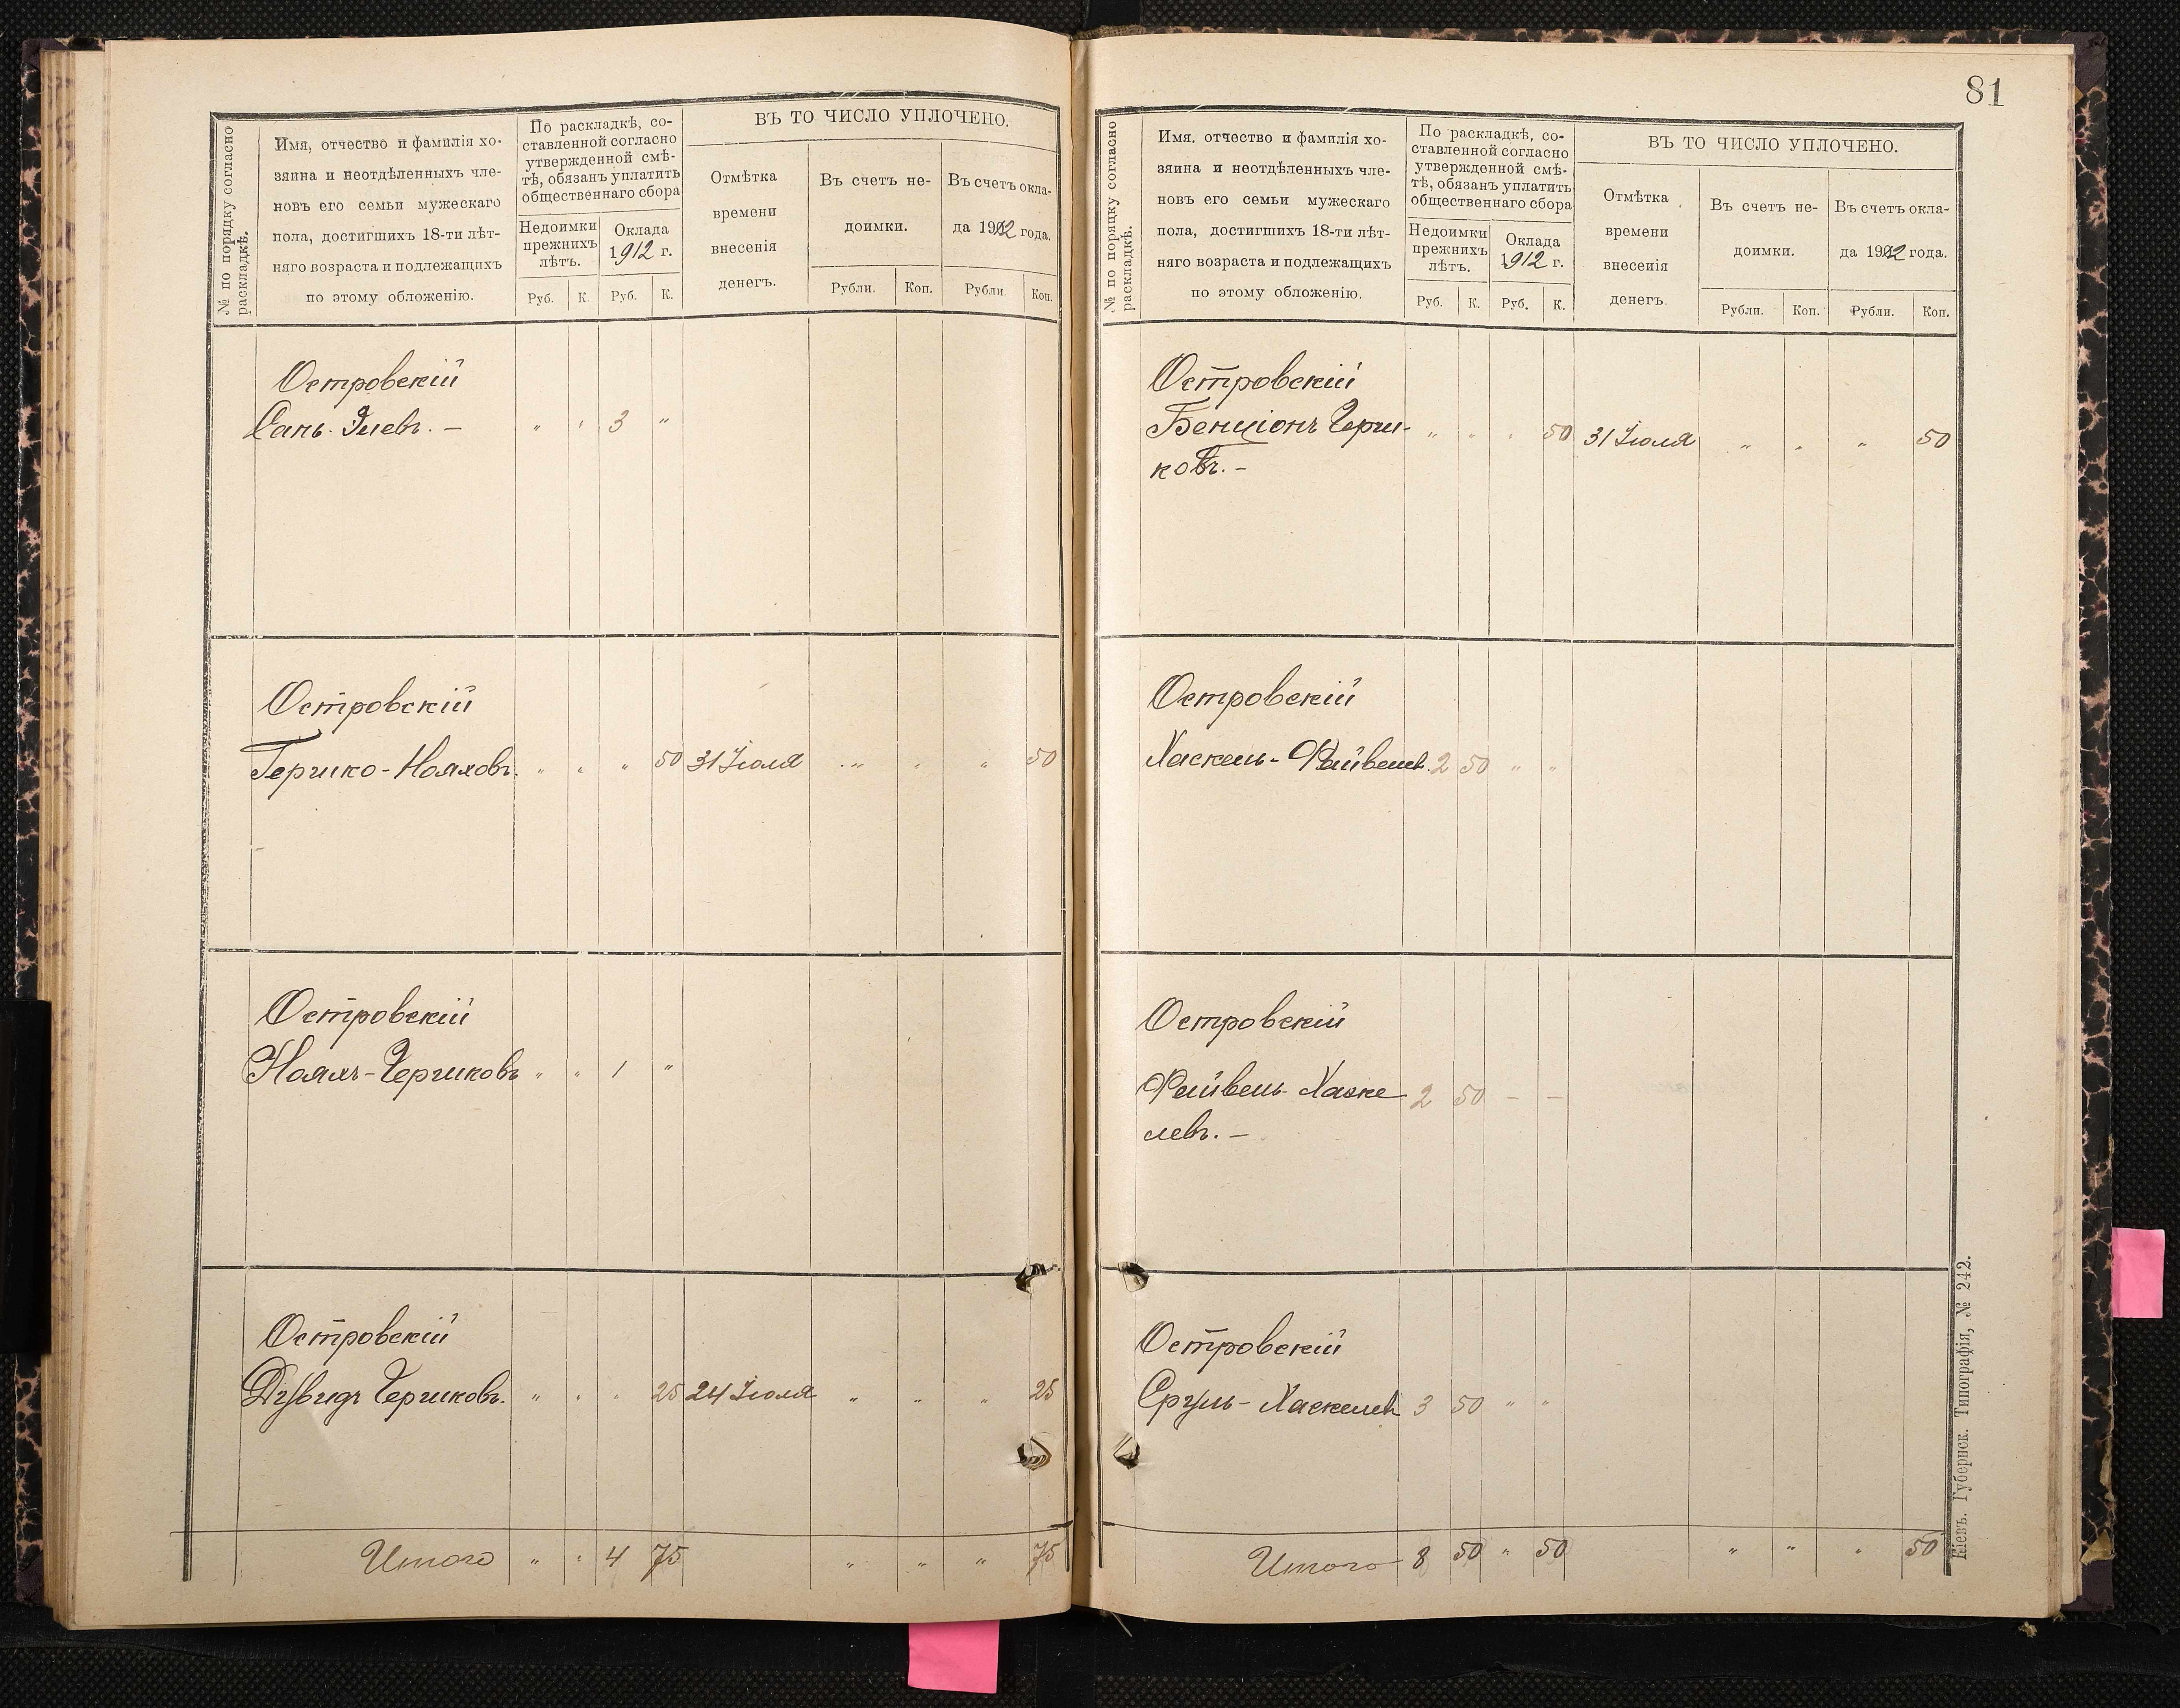 81
№ по порядку согласно
раскладкѣ.
Имя, отчество и фамилія хо-
зяина и неотдѣленныхъ чле-
новъ его семьи мужескаго
пола, достигшихъ 18-ти лѣт-
няго возраста и подлежащихъ
по этому обложенію.
По раскладкѣ, со-
ставленной согласно
утвержденной смѣ-
тѣ, обязанъ уплатить
общественнаго сбора
Недоимки
прежнихъ
лѣтъ.
Оклада
1912 г.
Руб. К. Руб. К.
ВЪ ТО ЧИСЛО УПЛОЧЕНО.
Отмѣтка
времени
внесенія
денегъ.
Въ счетъ не-
доимки.
Въ счетъ окла-
да 1912 года.
Рубли. Коп. Рубли. Коп.
Островскій
" " 3 "
Островскій
Гершко-Нояховъ. " " " 50 31 Іюля " " " 50
Островскій
Нояхъ-Гершковъ " " 1 "
Островскій
Гершковъ. " " " 25 24 Іюля " " " 25
Итого " " 4 75 " " " 75
№ по порядку согласно
раскладкѣ.
Имя. отчество и фамилія хо-
зяина и неотдѣленныхъ чле-
новъ его семьи мужескаго
пола, достигшихъ 18-ти лѣт-
няго возраста и подлежащихъ
по этому обложенію.
По раскладкѣ, со-
ставленной согласно
утвержденной смѣ-
тѣ, обязанъ уплатить
общественнаго сбора
Недоимки
прежнихъ
лѣтъ.
Оклада
1912 г.
Руб. К. Руб. К.
ВЪ ТО ЧИСЛО УПЛОЧЕНО.
Отмѣтка
времени
внесенія
денегъ.
Въ счетъ не-
доимки.
Въ счетъ окла-
да 1912 года.
Рубли. Коп. Рубли. Коп.
Островскій
Бенціонъ Герш- " " " 50 31 Іюля " " " 50
ковъ. –
Островскій
Хаскель-Файвелев. 2 50 " "
Островскій
Файвель-Хаске 2 50 – –
левъ. –
Островскій
Сруль-Хаскелев 3 50 " "
Итого 8 50 " 50 " " " 50
Кіевъ. Губернск. Типографія, № 242.